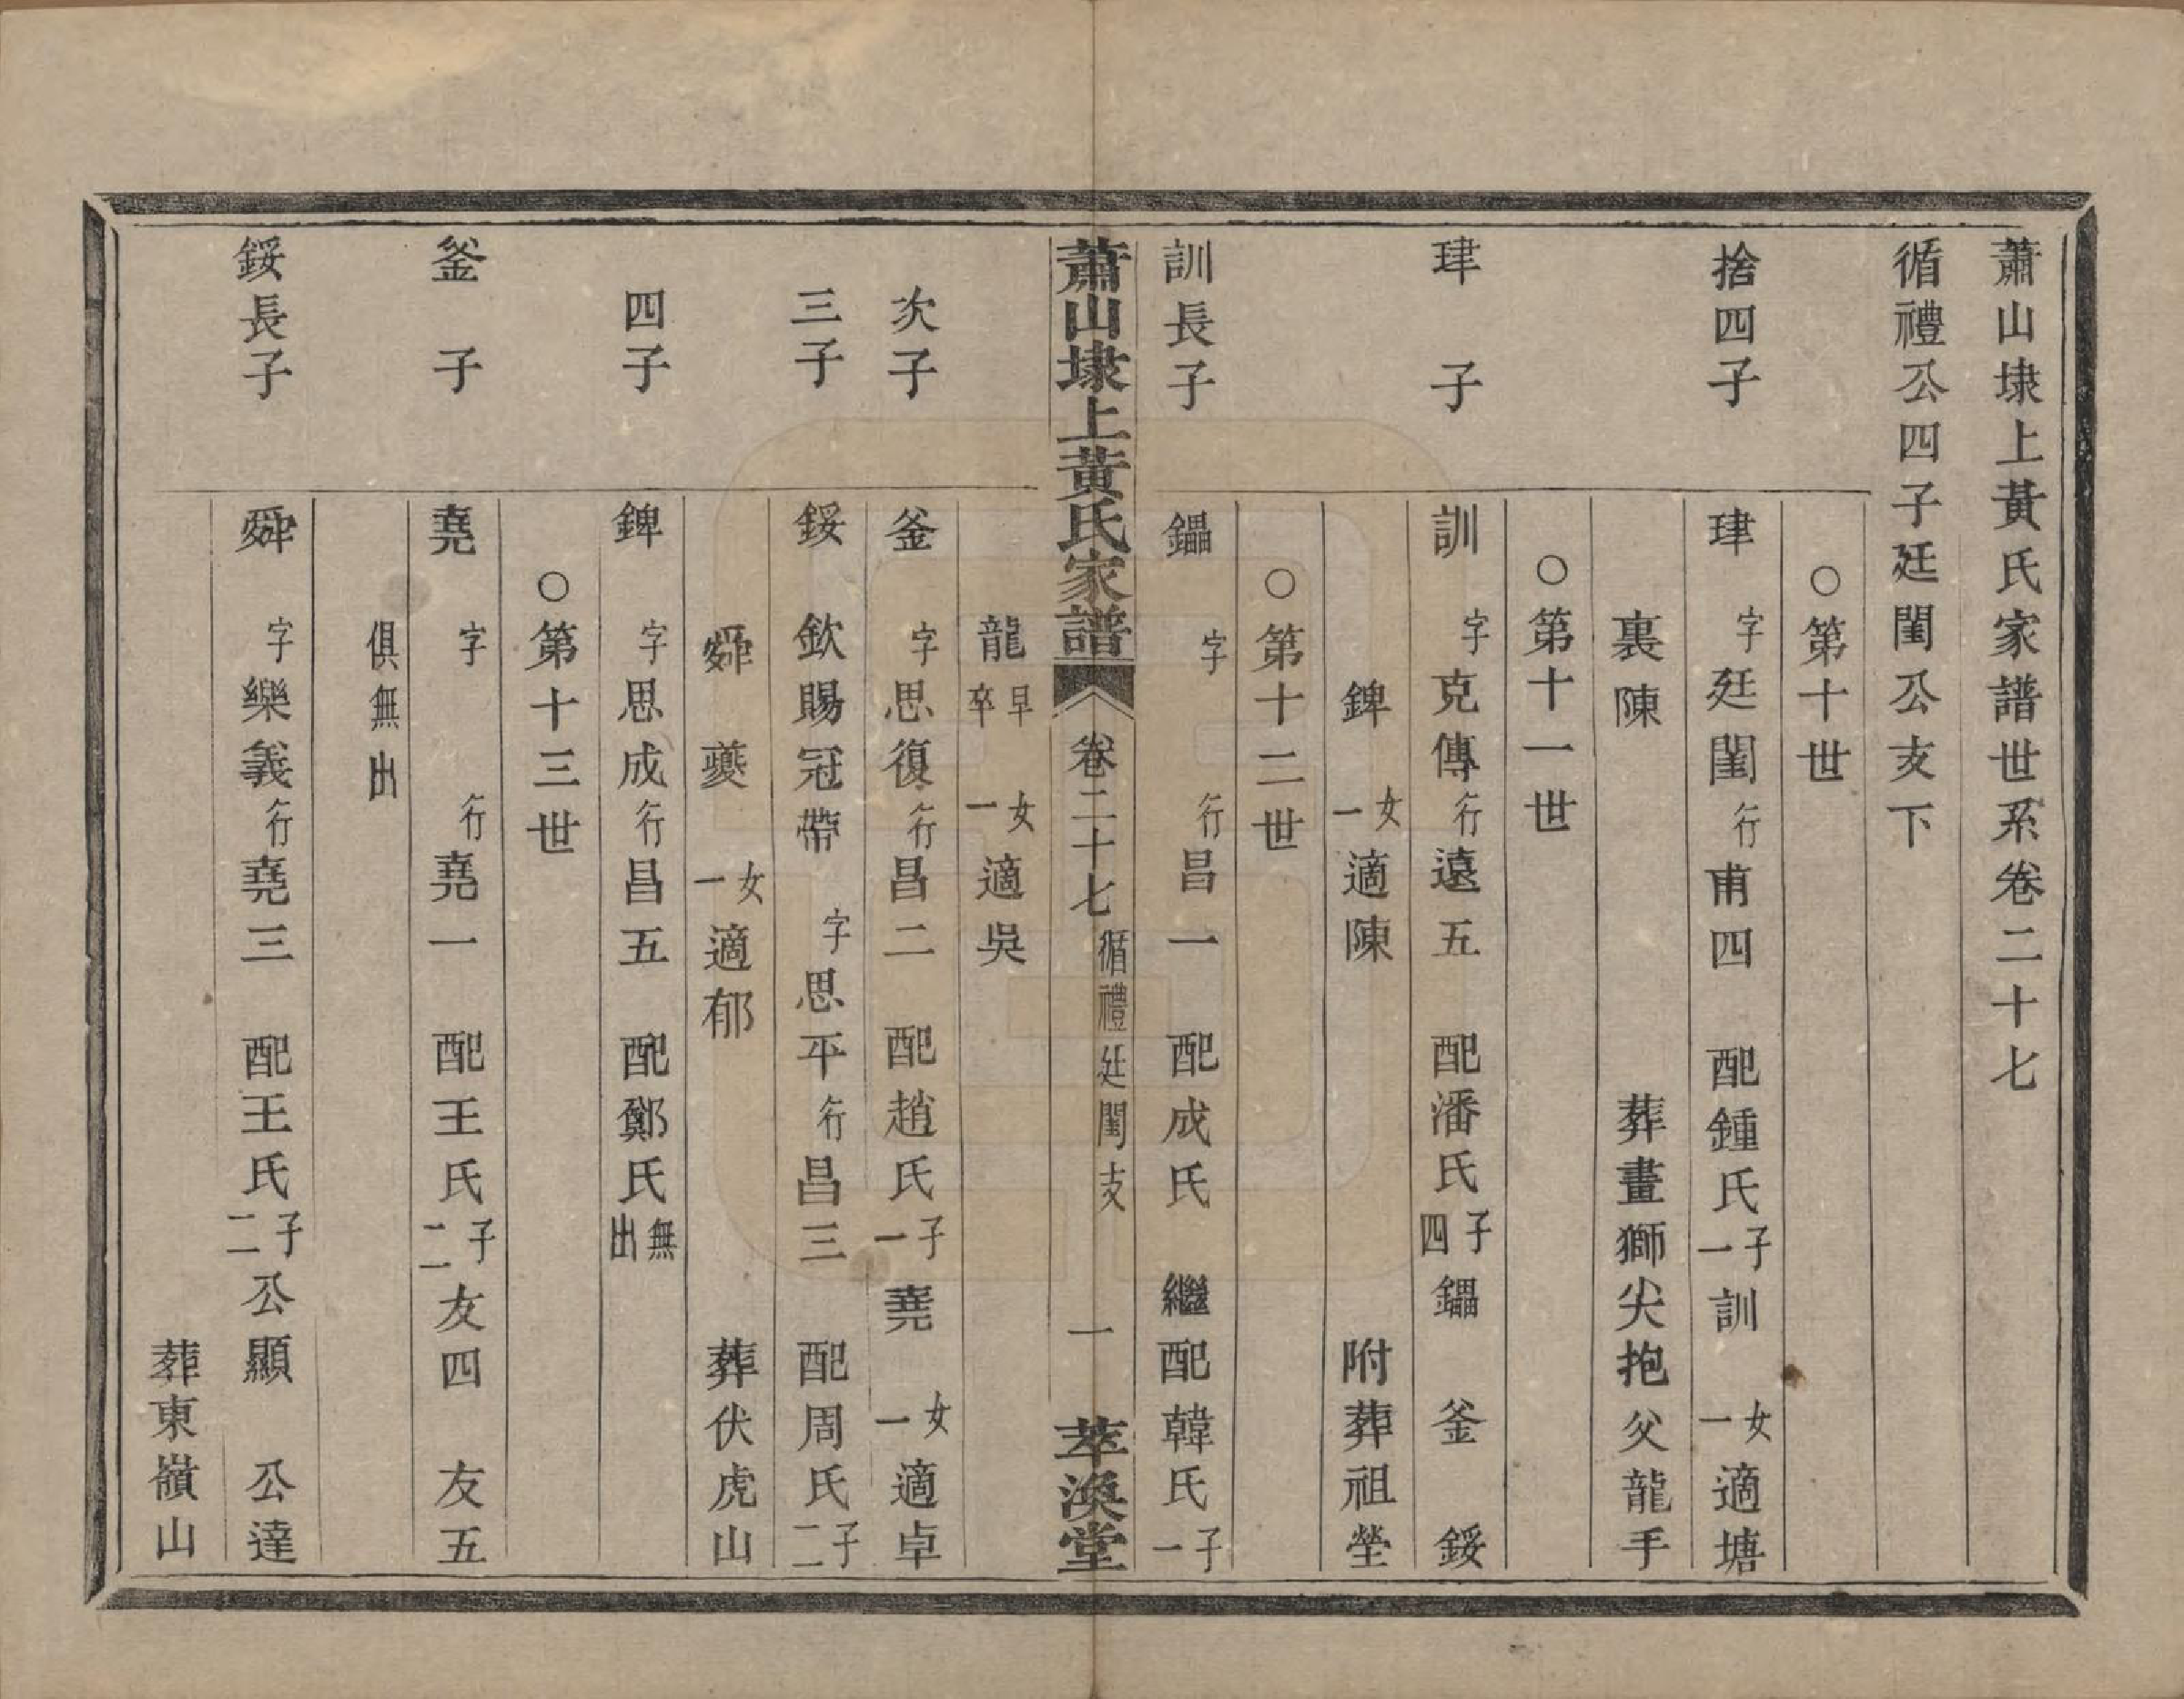 蕭山埭上黃氏家譜世系卷二十七
循禮公四子廷閨公支下
○第十世
捨四子 肆 字廷閨行甫四 配鍾氏子一訓 女一適塘
裏陳 葬畫獅尖抱父龍手
○第十一世
肆子 訓 字克傳行遠五 配潘氏子四鑘 釜 錽
錍 女一適陳 附葬祖塋
○第十二世
訓長子 鑘 字 行昌一 配成氏 繼配韓氏子一
蕭山埭上黃氏家譜 卷二十七 循禮廷閨支 一 萃渙堂
龍早卒 女一適吳
次子 釜 字思復行昌二 配趙氏子一堯 女一適卓
三子 錽 欽賜冠帶 字思平行昌三 配周氏子二
舜 夔 女一適郁 葬伏虎山
四子 錍 字思成行昌五 配鄭氏無出
○第十三世
釜子 堯 字 行堯一 配王氏子二友四 友五
俱無出
錽長子 舜 字樂義行堯三 配王氏子二公顯 公達
葬東嶺山